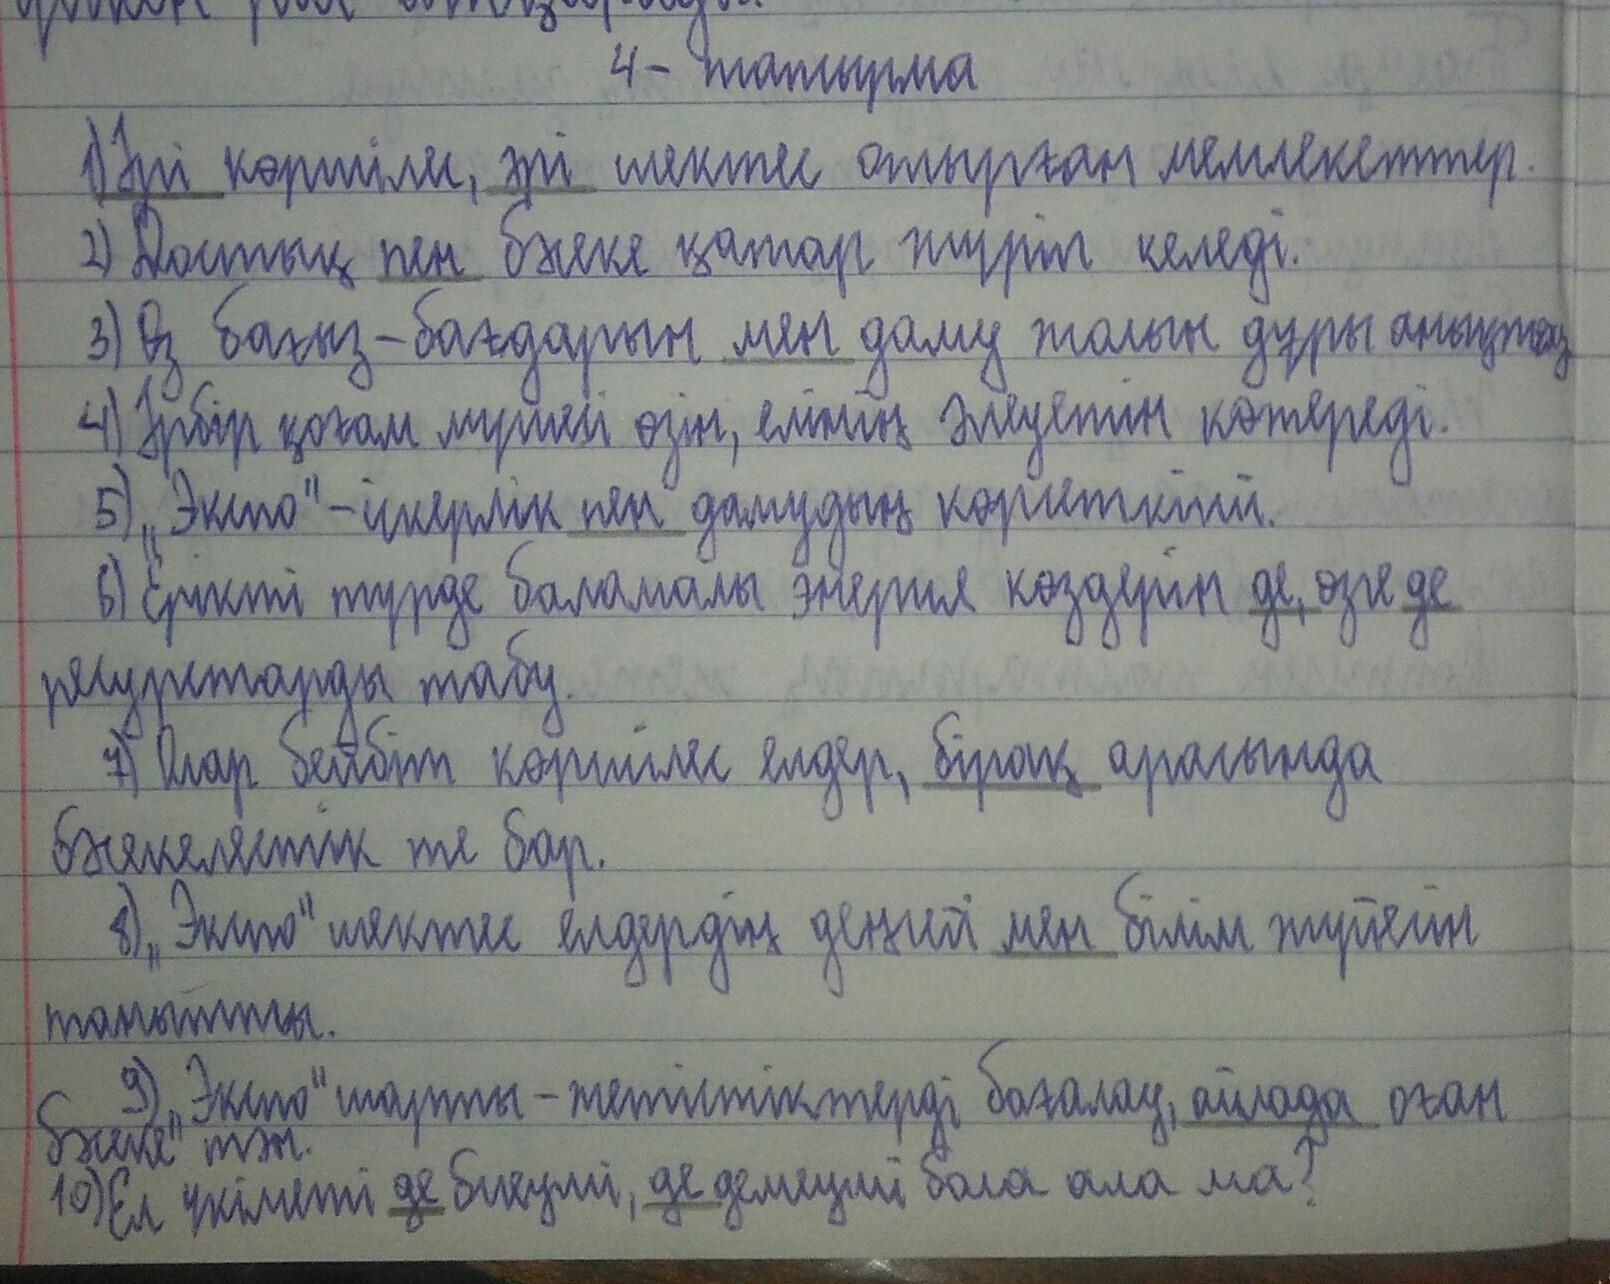 4- тапсырма
1) Әрі көршілес, әрі шектес отырған мемлекеттер.
2) Достық пен бәсеке қатар жүріп келеді.
3) Өз бағыз-бағдарын мен даму жолын дұры анықтау
4) Әрбір қоғам мүшесі өзін, елінің әлеуетін көтереді.
5) „Экспо"-іскерлік пен дамудың көрсеткіші.
6) Ерікті түрде баламалы энергия көздерін де, өзге де
ресурстарды табу.
7) Олар бейбіт көршілес елдер, бірақ арасында
бәсекелестік те бар.
8) „Экспо" шектес елдердің деңгей мен білім жүйесін
танытты.
9) „Экспо" шарты - жетістіктерді бағалау, ойлада оған
бәсеке" тән.
10) Ел үкіметі де бизуші, де демеуші бола ала ма?